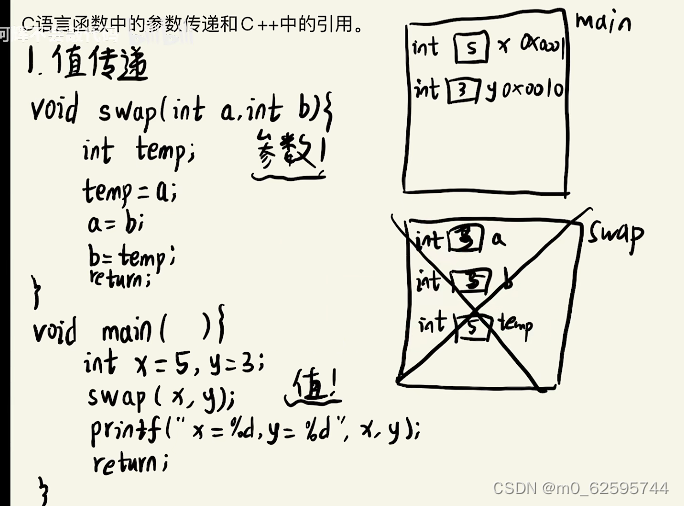 C语言函数中的参数传递和C++中的引用。
1.值传递
void swap(int a,int b){
int temp; 参数!
temp=a;
a=b;
b=temp;
return;
}
void main( ){
int x=5,y=3;
swap(x,y); 值!
printf("x=%d,y=%d",x,y);
return;
}
main
int 5 x 0x0001
int 3 y 0x0010
swap
int 3 a
int 5 b
int 5 temp
CSDN @m0_62595744